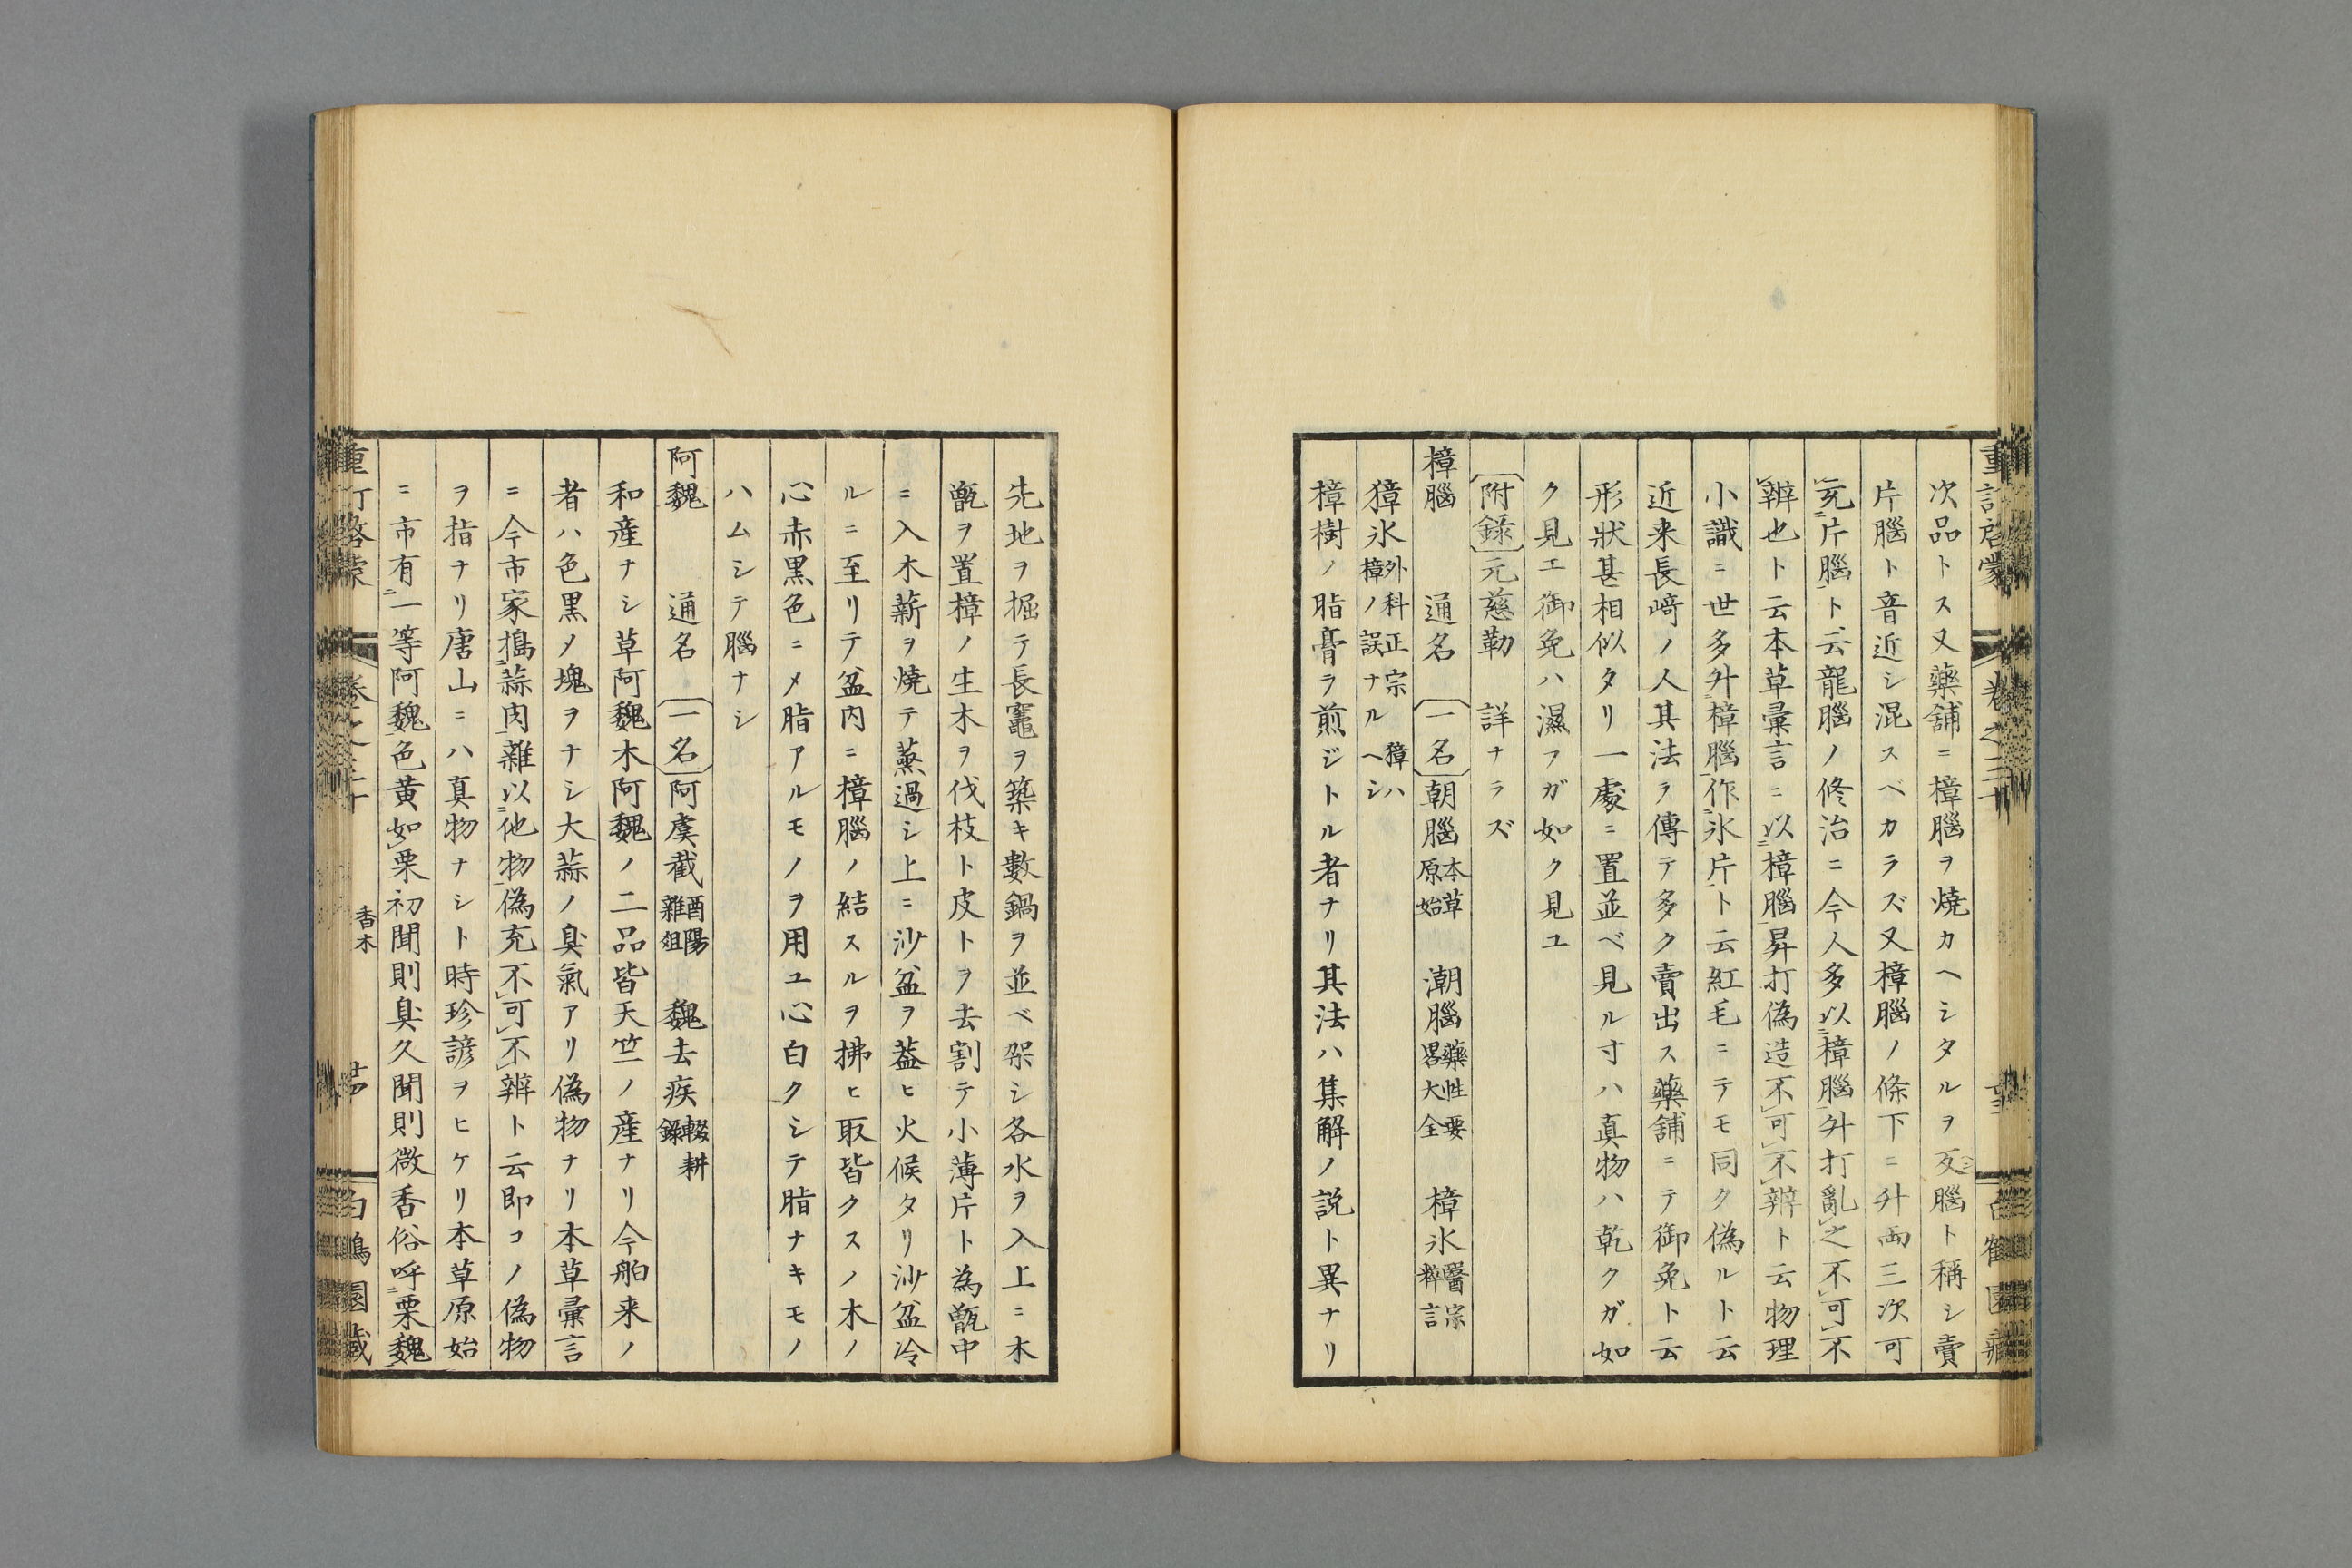 次品トス又藥舗ニ樟腦ヲ燒カヘシタルヲ反腦ト稱シ賣
片腦ト音近シ混スベカラズ又樟腦ノ條下ニ升兩三次可
充片腦ト云龍腦ノ修治ニ今人多以樟腦升打亂之不可不
辨也ト云本草彙言ニ以樟腦昇打偽造不可不辨ト云物理
小識ニ世多升樟腦作氷片ト云紅毛ニテモ同ク偽ルト云
近来長﨑ノ人其法ヲ傳テ多ク賣出ス藥舗ニテ御免ト云
形狀甚相似タリ一處ニ置並ベ見ル寸ハ真物ハ乾クガ如
ク見エ御免ハ濕フガ如ク見ユ
附錄 元慈勒 詳ナラズ
樟腦 通名 一名 朝腦 本草原始 潮腦 藥性要畧大全 樟氷 醫宗粹言
獐氷 外科正宗 獐ハ樟ノ誤ナルヘシ
樟樹ノ脂膏ヲ煎ジトル者ナリ其法ハ集解ノ説ト異ナリ
先地ヲ掘テ長竈ヲ築キ數鍋ヲ並ベ架シ各水ヲ入上ニ木
甑ヲ置樟ノ生木ヲ伐枝ト皮トヲ去割テ小薄片ト為甑中
ニ入木薪ヲ燒テ蒸過シ上ニ沙盆ヲ葢ヒ火候タリ沙盆冷
ルニ至リテ盆内ニ樟腦ノ結スルヲ拂ヒ取皆クスノ木ノ
心赤黒色ニメ脂アルモノヲ用ユ心白クシテ脂ナキモノ
ハムシテ腦ナシ
阿魏 通名 一名 阿虞截 酉陽雜俎 魏去疾 輟耕錄
和産ナシ草阿魏木阿魏ノ二品皆天竺ノ産ナリ今舶来ノ
者ハ色黒メ塊ヲナシ大蒜ノ臭氣アリ偽物ナリ本草彙言
ニ今市家搗蒜肉雜以他物偽充不可不辨ト云即コノ偽物
ヲ指ナリ唐山ニハ真物ナシト時珍諺ヲヒケリ本草原始
ニ市有一等阿魏色黄如栗初聞則臭久聞則微香俗呼栗魏
香木